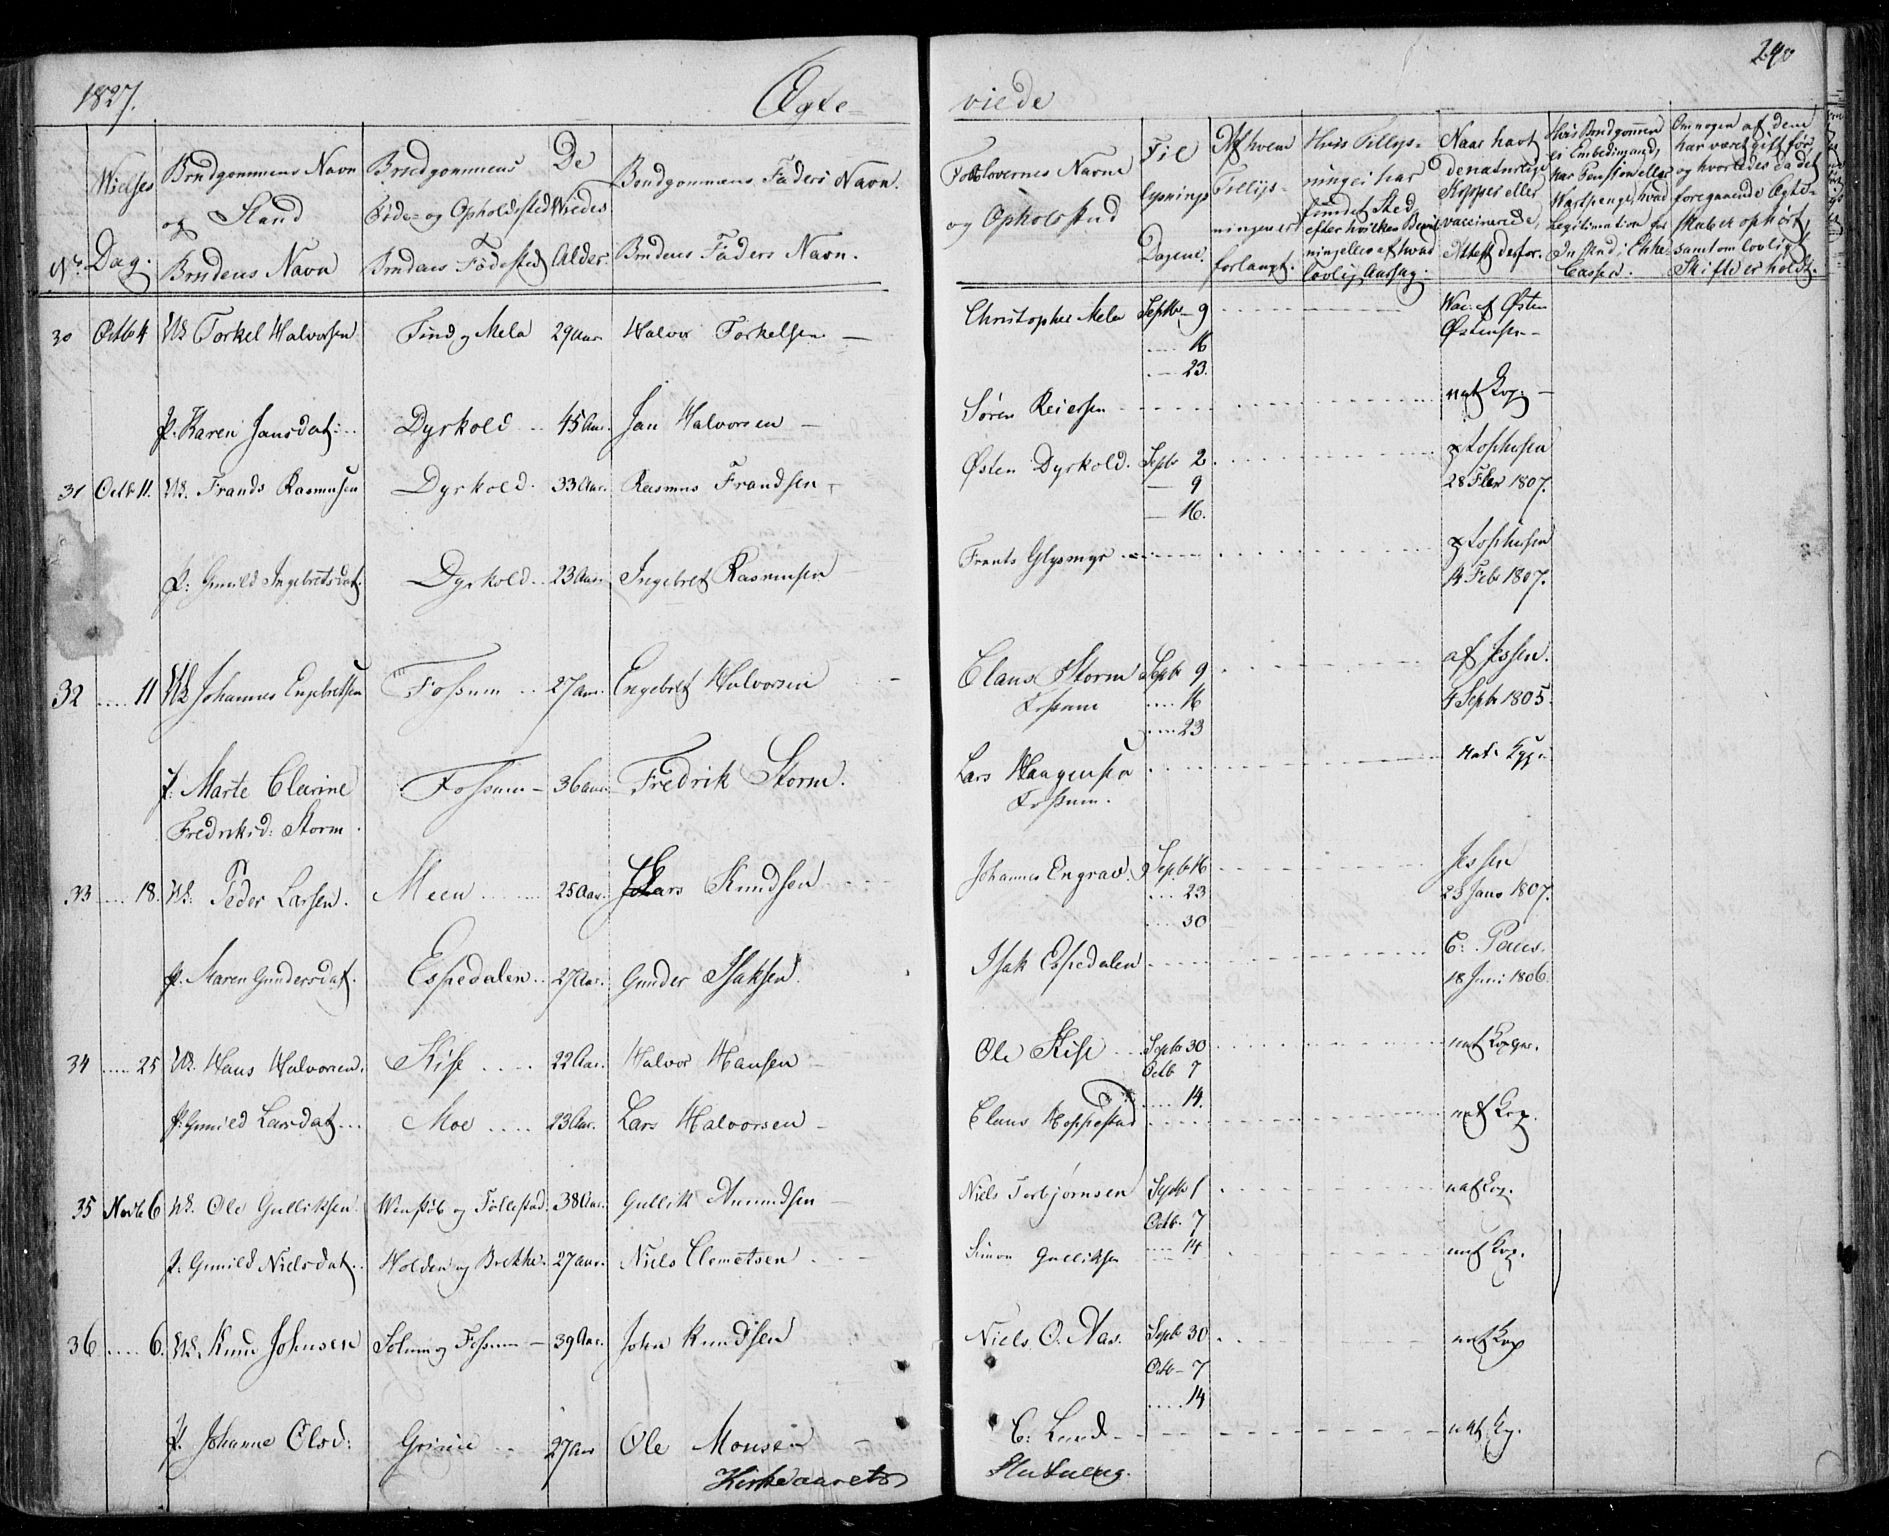 1827.
Ægte-
viede
240
No.
Vielses
Dag.
Brudgommens Navn
og Stand
Brudens Navn
Brudgommens
Føde- og Opholdssted
Brudens Fødested
De
Viedes
Alder
Brudgommens Faders Navn.
Brudens Faders Navn.
Forlovernes Navne
og Opholdsted
Til
lysnings
Dagene.
Af hvem
Tillys-
ningen er
forlangt.
Hvis Tillys-
ning ei har
fundet Sted,
efter hvilken Bevil
ning eller af hvad
lovlig Aarsag.
Naar havt
de naturlige
Kopper eller
vaccinerede,
Attest derfor.
Hvis Brudgommen
ei Embedsmand,
har Pension eller
Vartpenge, hvad
Legitimation for
Indskud i Enke
Cassen.
Om nogen af dem
har været gift før,
og hvorledes da det
foregaaende Ægte-
skab er ophørt,
samt om lovligt
Skifte er holdt.
30 Octb 4 Uk Torkel Halvorsen Tind og Mela 29 Aar Halvor Torkelsen — Christopher Mela Septbr 9 Vac: af Østen
Østensen
16
23.
p. Karen Jansdat: Dyrkold 45 Aar. Jan Halvorsen — Søren Reiersen nat Kop:
31 Octb 11. Uk. Frands Rasmusen Dyrkold. 33 Aar. Rasmus Frandsen Østen Dyrkold. Septr 2
28 Febr 1807.
9
16.
p: Gunild Ingebretsdat. Dyrkold. 23 Aar Ingebret Rasmusen Frants Glysmyr
14 Febr 1807.
32 11 Uk Johannes Engebretsen Fossum 27 Aar. Engebret Halvorsen Claus Storm Septr 9 af Jessen.
Fossum 16 4 Septr 1805.
23
p: Marte Clarine Fossum 36 Aar. Fredrik Storm. Lars Haagensen nat: Kop:
Fredriksd: Storm. Fossum.
33 18. Uk. Peder Larsen. Meen 25 Aar. Lars Knudsen Johannes Engrav. Septr 16 Jessen
23 23 Janr 1807.
30
p. Maren Gundersdat. Espedalen 27 Aar. Gunder Isaksen. Isak Espedalen C: Paus.
18 Juni 1806.
34 25 Uk. Hans Halvorsen. Kise 22 Aar. Halvor Hansen Ole Kise Septr 30 nat Kopper.
Octb 7
14.
p. Gunild Larsdat Moe 23 Aar. Lars Halvorsen Claus Hoppestad nat Kop.
35 Novbr 6 Uk. Ole Gulliksen. Venstøb og Tollestad. 38 Aar. Gullik Amundsen Niels Torbjørnsen Septbr nat Kop.
Octb. 7
14
p. Gunild Nielsdat. Holden og Brekke. 27 Aar. Niels Clemetsen Simon Gulliksen nat Kop.
36 6. Uk. Knud Johnsen Solum og Fossum 39 Aar. John Knudsen Niels O. Aas. Septb 30 nat Kop
Octb 7
14
p. Johanne Olsd: Grinie 27 Aar Ole Monsen C: Lund nat Kop.
Kirkeaarets Slutning.